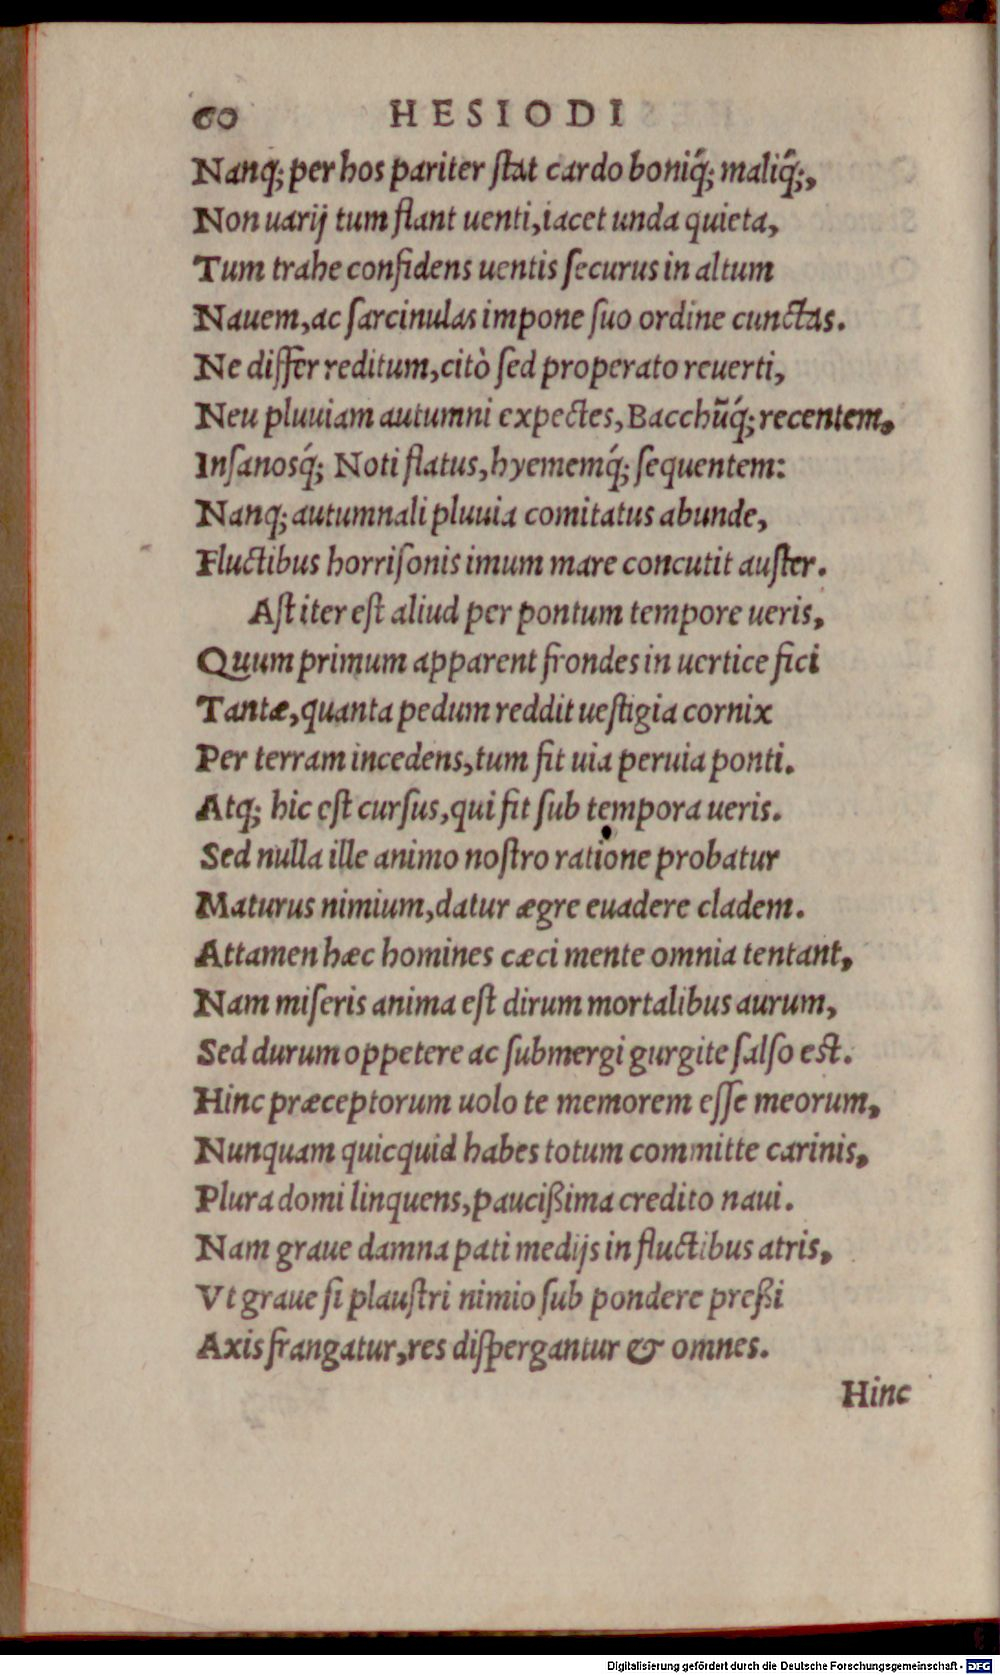 60 HESIODI
Nanq; per hos pariter ſtat cardo boniq́; maliq́;,
Non uarij tum flant uenti, iacet unda quieta,
Tum trahe confidens uentis ſecurus in altum
Nauem, ac ſarcinulas impone ſuo ordine cunctas.
Ne differ reditum, citò ſed properato reuerti,
Neu pluuiam autumni expectes, Bacchũq́; recentem,
Inſanosq́; Noti flatus, hyememq́; ſequentem:
Nanq; autumnali pluuia comitatus abunde,
Fluctibus horriſonis imum mare concutit auſter.
Aſt iter eſt aliud per pontum tempore ueris,
Quum primum apparent frondes in uertice fici
Tantæ, quanta pedum reddit ueſtigia cornix
Per terram incedens, tum fit uia peruia ponti.
Atq; hic eſt curſus, qui fit ſub tempora ueris.
Sed nulla ille animo noſtro ratione probatur
Maturus nimium, datur ægre euadere cladem.
Attamen hæc homines cæci mente omnia tentant,
Nam miſeris anima eſt dirum mortalibus aurum,
Sed durum oppetere ac ſubmergi gurgite ſalſo eſt.
Hinc præceptorum uolo te memorem eſſe meorum,
Nunquam quicquid habes totum committe carinis,
Plura domi linquens, pauciſsima credito naui.
Nam graue damna pati medijs in fluctibus atris,
Vt graue ſi plauſtri nimio ſub pondere preſsi
Axis frangatur, res diſpergantur & omnes.
Hinc
Digitalisierung gefördert durch die Deutsche Forschungsgemeinschaft - DFG